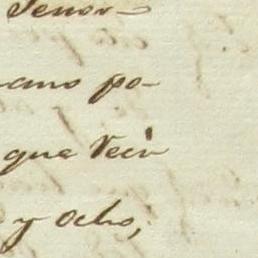 Senor
cano po-
que Vecin
y ocho,